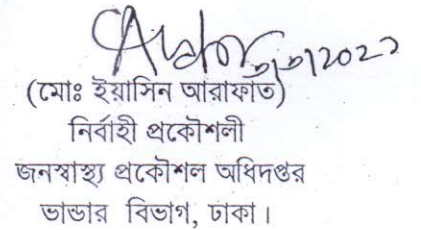 (মোঃ ইয়াসিন আরাফাত)
নির্বাহী প্রকৌশলী
জনস্বাস্থ্য প্রকৌশল অধিদপ্তর
ভান্ডার বিভাগ, ঢাকা।